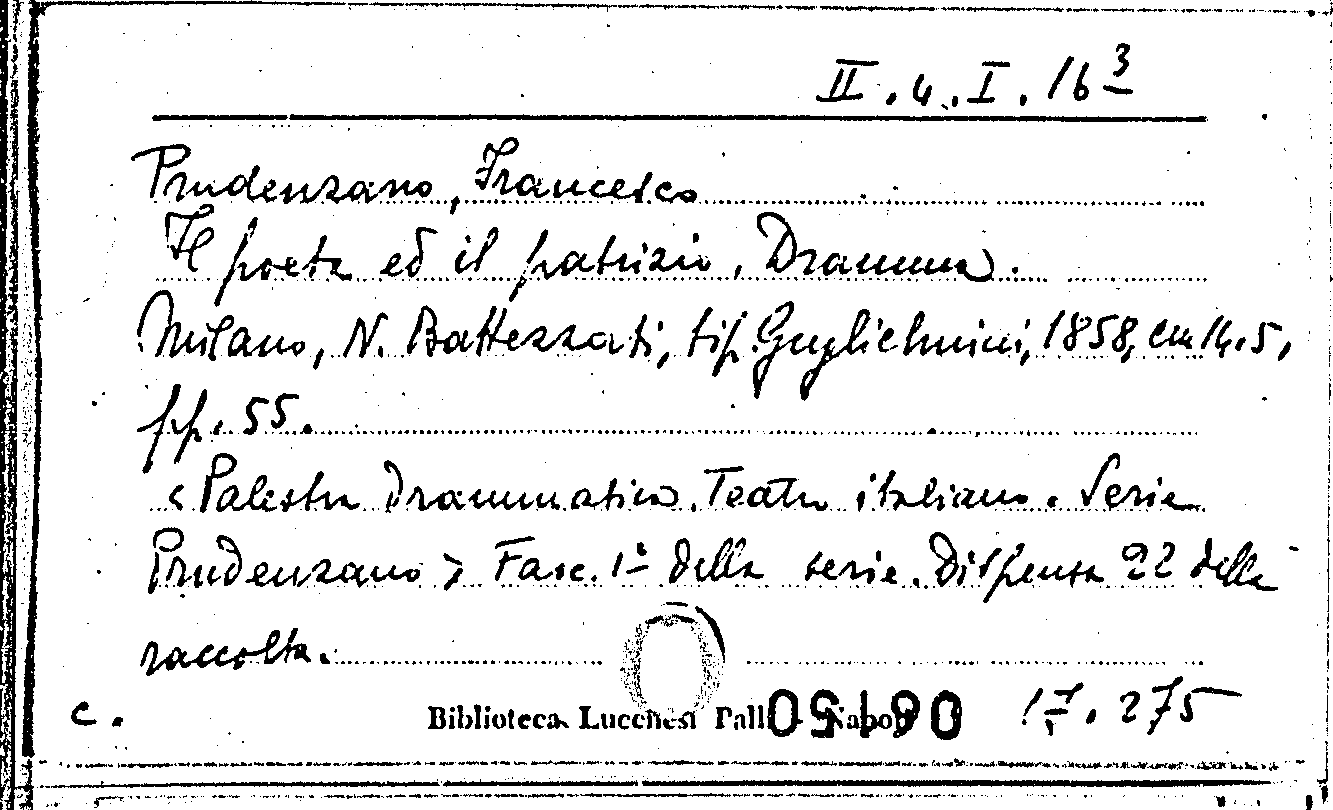 II.4.I.16³
Prudenzano, Francesco
Il poeta ed il patrizio, Dramma.
Milano, N. Battezzati, tip. Guglielmini, 1858, cm 14.5,
pp. 55.
<Palestra drammatica. Teatro italiano. Serie
Prudenzano> Fasc. 1º della serie. Dispensa 22 della
raccolta.
c.
Biblioteca Lucchesi Palli - Napoli
17.275